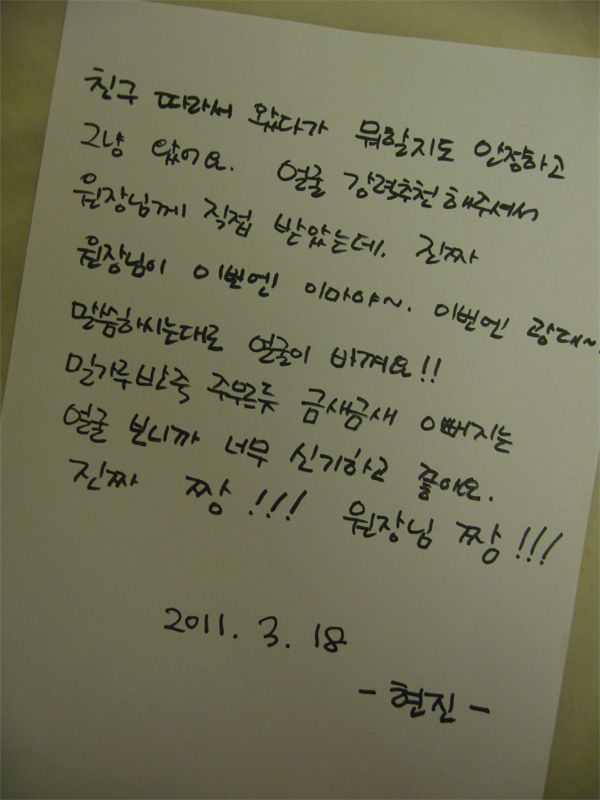 친구 따라서 왔다가 뭐할지도 안정하고
그냥 왔어요. 얼굴 강력추천 해주셔서
원장님께 직접 받았는데, 진짜
원장님이 이번엔! 이마야~. 이번엔 광대~.
말씀하시는대로 얼굴이 바껴요!!
밀가루반죽 주무르듯 금새금새 이뻐지는
얼굴 보니까 너무 신기하고 좋아요.
진짜 짱!!! 원장님 짱!!!
2011. 3. 18
- 현진 -